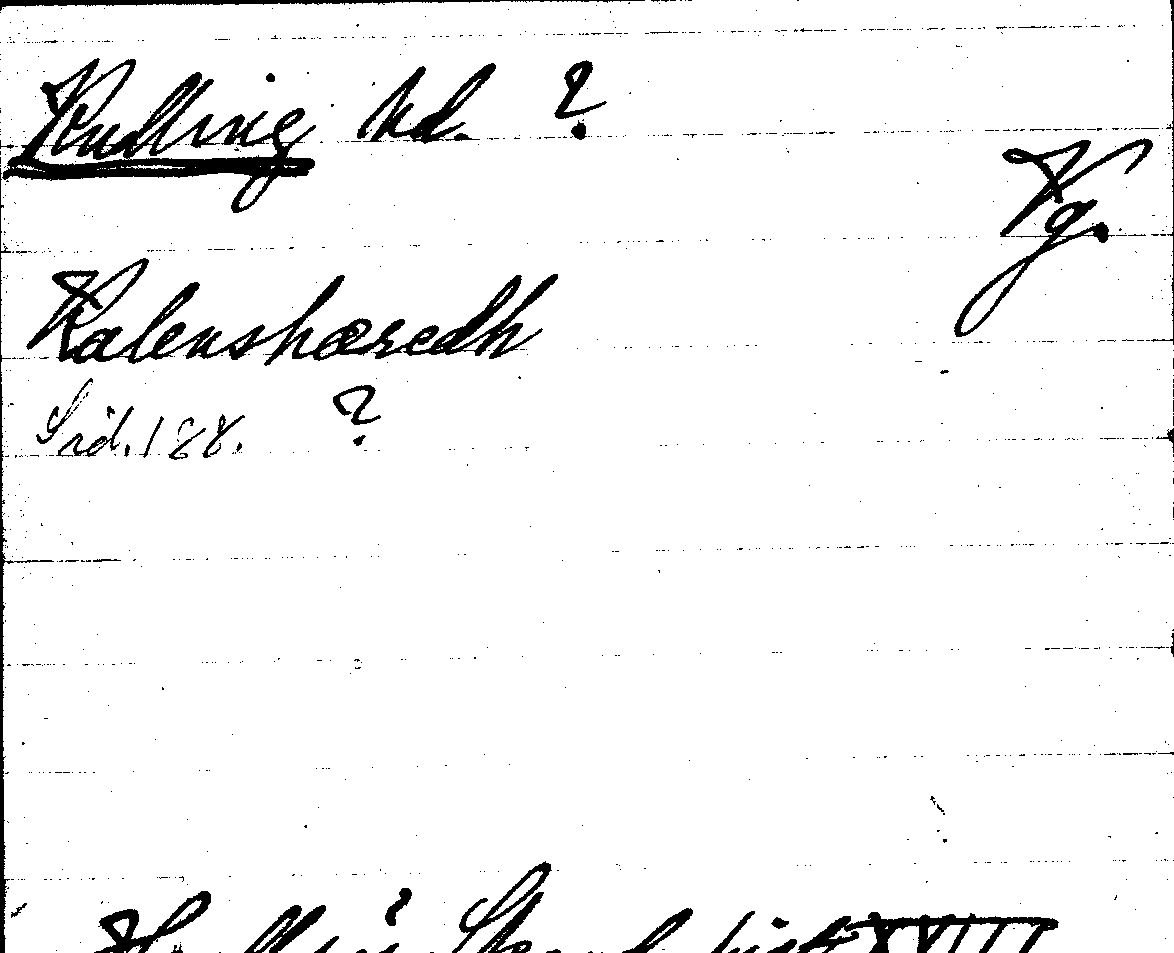 Kulling hd. ?
Vg.
Kalenshæredh
Srd. 188. ?
XVIII